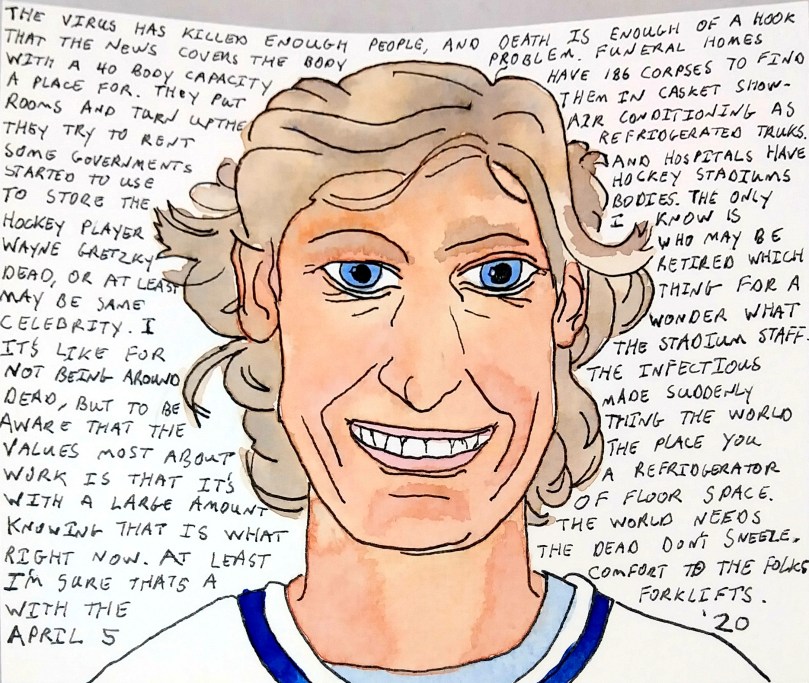 THE VIRUS HAS KILLED ENOUGH PEOPLE, AND DEATH IS ENOUGH OF A HOOK
THAT THE NEWS COVERS THE BODY PROBLEM. FUNERAL HOMES
WITH A 40 BODY CAPACITY HAVE 186 CORPSES TO FIND
A PLACE FOR. THEY PUT THEM IN CASKET SHOW-
ROOMS AND TURN UP THE AIR CONDITIONING AS
THEY TRY TO RENT REFRIDGERATED TRUKS.
SOME GOVERNMENTS AND HOSPITALS HAVE
STARTED TO USE HOCKEY STADIUMS
TO STORE THE BODIES. THE ONLY
HOCKEY PLAYER I KNOW IS
WAYNE GRETZKY WHO MAY BE
DEAD, OR AT LEAST RETIRED WHICH
MAY BE SAME THING FOR A
CELEBRITY. I WONDER WHAT
IT'S LIKE FOR THE STADIUM STAFF.
NOT BEING AROUND THE INFECTIOUS
DEAD, BUT TO BE MADE SUDDENLY
AWARE THAT THE THING THE WORLD
VALUES MOST ABOUT THE PLACE YOU
WORK IS THAT IT'S A REFRIDGERATOR
WITH A LARGE AMOUNT OF FLOOR SPACE.
KNOWING THAT IS WHAT THE WORLD NEEDS
RIGHT NOW. AT LEAST THE DEAD DON'T SNEEZE.
I'M SURE THATS A COMFORT TO THE FOLKS
WITH THE FORKLIFTS.
APRIL 5 '20